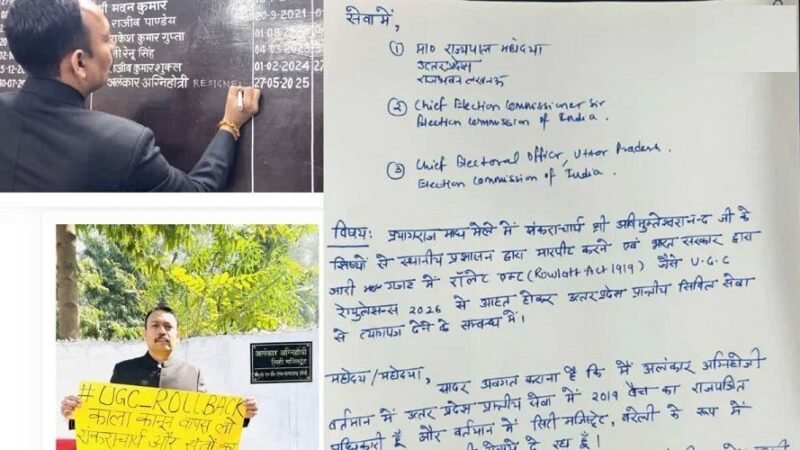 श्री मदन कुमार
20-9-2021
राजीव पाण्डेय
01-08
राकेश कुमार गुप्ता
04-03
रेनू सिंह
राजीव कुमार शुक्ल
01-02-2024
27
अलंकार अग्निहोत्री RESIGNE
27-05-2025
अलंकार अग्निहोत्री
सिटी मजिस्ट्रेट
#UGC_ROLLBACK
काला कानून वापस लो
शंकराचार्य और संतों का
सेवा में,
① मा० राज्यपाल महोदया
उत्तर प्रदेश
राजभवन लखनऊ
② Chief Election Commissioner Sir
Election Commission of India.
③ Chief Electoral Officer, Uttar Pradesh.
Election Commission of India.
विषय: प्रयागराज माघ मेले में शंकराचार्य श्री अविमुक्तेश्वरानन्द जी के
शिष्यों से स्थानीय प्रशासन द्वारा मारपीट करने एवं भारत सरकार द्वारा
जारी गजट में रॉलेट एक्ट (Rowlatt Act 1919) जैसे U.G.C
रेगुलेसन्स 2026 से आहत होकर उत्तर प्रदेश प्रान्तीय सिविल सेवा
से त्यागपत्र देने के सम्बन्ध में।
महोदय/महोदया,
सादर अवगत कराना है कि मैं अलंकार अग्निहोत्री
वर्तमान में उत्तर प्रदेश प्रान्तीय सिविल सेवा में 2019 बैच का राजपत्रित
अधिकारी हूँ और वर्तमान में सिटी मजिस्ट्रेट, बरेली के रूप में
दे रहा हूँ।